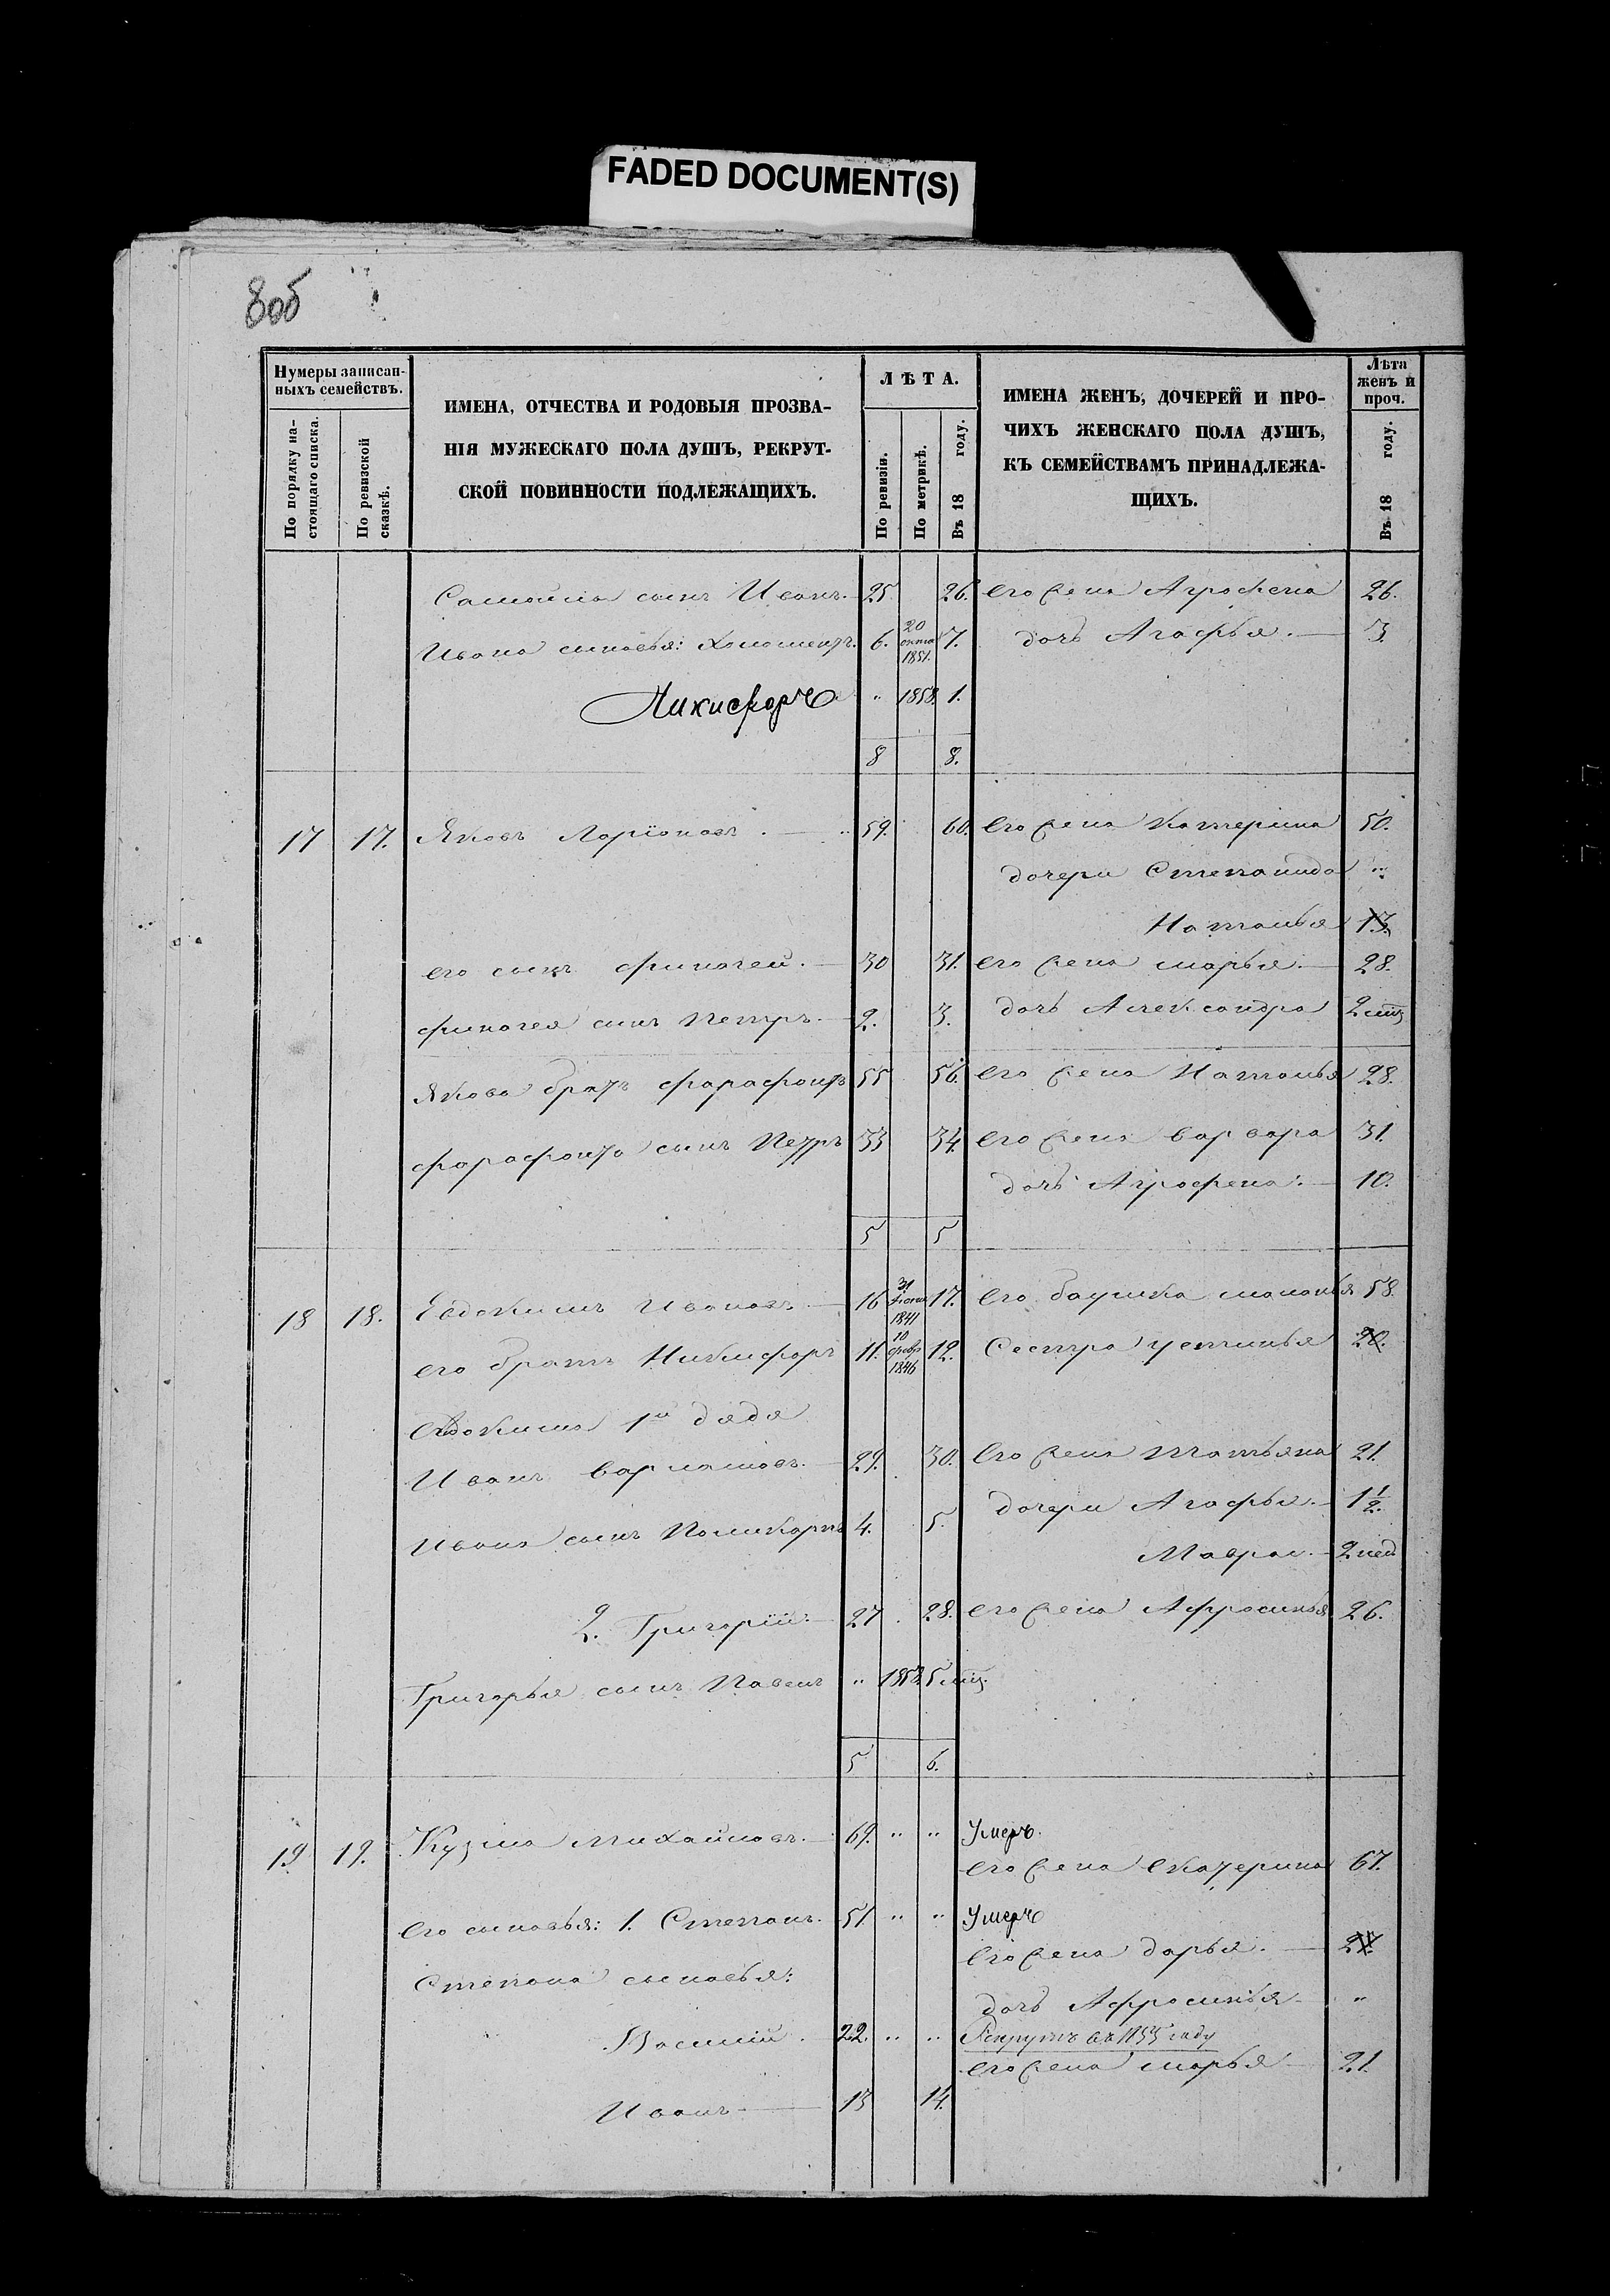 FADED DOCUMENT(S)
8об
Нумеры записан-
ныхъ семействъ.
По порядку на-
стоящаго списка.
По ревизской
сказкѣ.
ИМЕНА, ОТЧЕСТВА И РОДОВЫЯ ПРОЗВА-
НІЯ МУЖЕСКАГО ПОЛА ДУШЪ, РЕКРУТ-
СКОЙ ПОВИННОСТИ ПОДЛЕЖАЩИХЪ.
ЛѢТА.
По ревизіи.
По метрикѣ.
Въ 18 году.
ИМЕНА ЖЕНЪ, ДОЧЕРЕЙ И ПРО-
ЧИХЪ ЖЕНСКАГО ПОЛА ДУШЪ,
КЪ СЕМЕЙСТВАМЪ ПРИНАДЛЕЖА-
ЩИХЪ.
Лѣта
женъ и
проч.
Въ 18 году.
Самойла сынъ Иванъ. 25. 26. его жена Агрофена 26.
Ивана сыновья: 6. 20 1851. 7. дочь Агафья. 3.
Никифоръ " 1858. 1.
8 8.
17 17. Яковъ Ларіоновъ. 59. 60. его жена Катерина 50.
дочери Степанида "
Наталья 13.
его сынъ Финогей. 30 31. его жена марья. 28.
финогея сынъ Петръ. 2. 3. дочь Александра 2 мѣц
Якова братъ фарафонтъ 55 56. его жена Наталья 28.
фарафонта сынъ Петръ 33 34. его жена варвара 31.
дочь Агрофена. 10.
5 5
18 18. Евдокимъ Ивановъ. 16 31 1841 17. его баушка маланья 58.
его братъ Никифоръ 11. 10 февр 1846 12. Сестра устинья 20.
Евдокима 1й дядя
Иванъ варламовъ. 29. 30. его жена татьяна 21.
Ивана сынъ Поликарпъ 4. 5. дочери Агафья. 1 1/2.
Мавра. 2 нед
2. Григорій. 27. 28. его жена Афросинья 26.
Григорья сынъ Павелъ " 1858. 5 мѣц.
5 6.
19 19. Кузма Михайловъ. 69. " " Умеръ.
его жена екатерина 67.
его сыновья: 1. Степанъ. 51. " " Умеръ
его жена дарья. 27.
Степана сыновья:
дочь Афросинья "
Василій. 22. " " Рекрутъ въ 1855 году
его жена марья 21.
Иванъ 13 14.